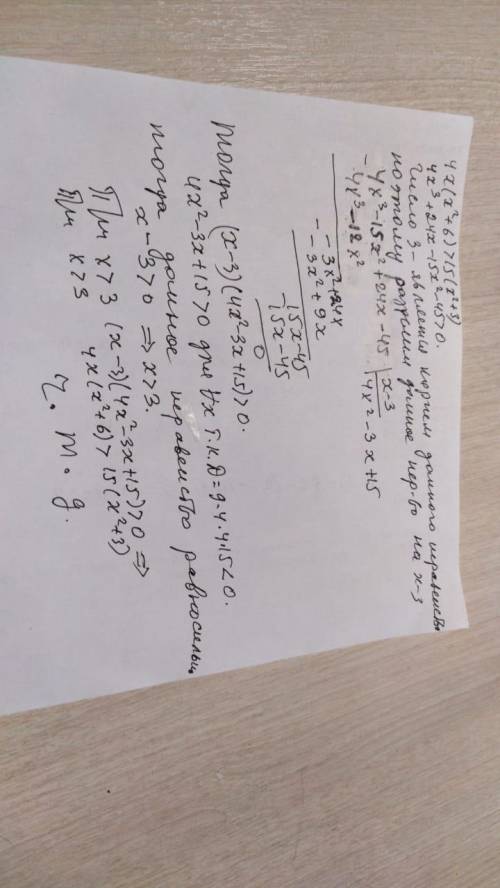 4x(x²+6)>15(x²+3)
4x³+24x-15x²-45>0.
Число 3 - является корнем данного неравенства
поэтому разделим данное нер-во на x-3
- 4x³-15x²+24x-45 | x-3
4x³-12x² 4x²-3x+15
- -3x²+24x
-3x²+9x
- 15x-45
15x-45
0
Тогда (x-3)(4x²-3x+15)>0.
4x²-3x+15>0 для ∀x т.к. D=9-4·4·15<0.
тогда данное неравенство равносильн
x-3>0 ⇒ x>3.
При x>3 (x-3)(4x²-3x+15)>0 ⇒
При x>3 4x(x²+6)>15(x²+3)
ч. т. д.